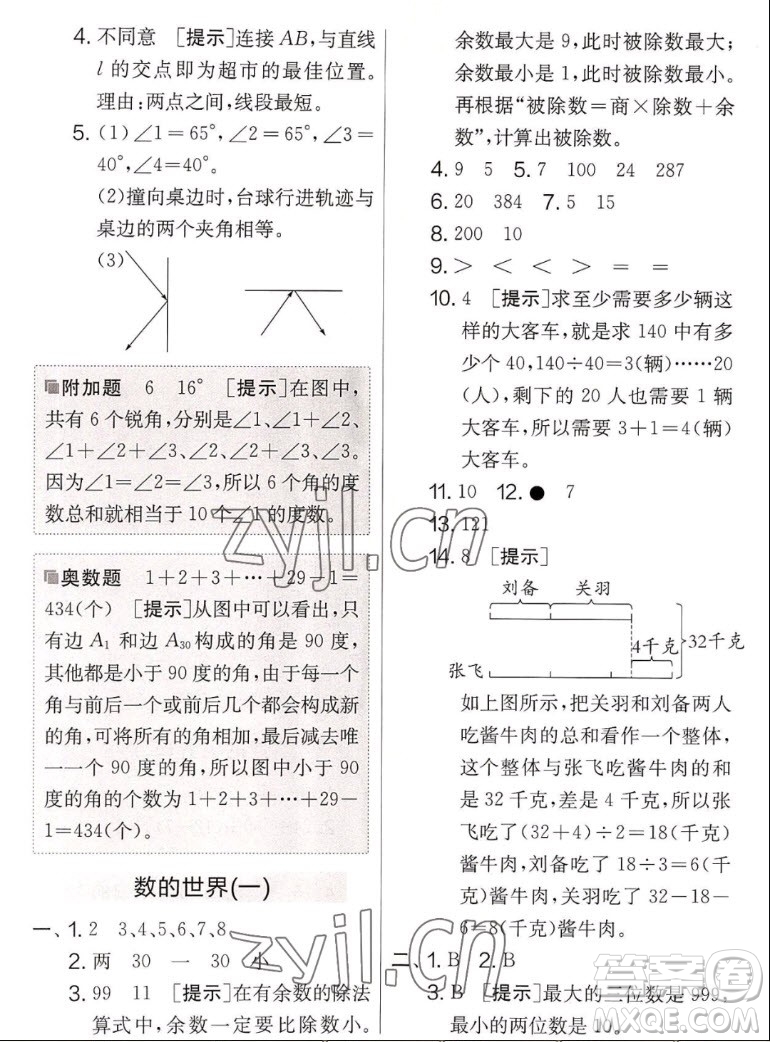 4. 不同意　[提示]连接 AB,与直线
l 的交点即为超市的最佳位置。
理由:两点之间,线段最短。
5. (1) ∠1=65°,∠2=65°,∠3=
40°,∠4=40°。
(2)撞向桌边时,台球行进轨迹与
桌边的两个夹角相等。
(3)
附加题　6　16°　[提示]在图中,
共有 6 个锐角,分别是∠1、∠1+∠2、
∠1+∠2+∠3、∠2、∠2+∠3、∠3。
因为∠1=∠2=∠3,所以 6 个角的度
数总和就相当于 10 个∠1 的度数。
奥数题　1+2+3+…+29-1=
434(个)　[提示]从图中可以看出,只
有边 A₁ 和边 A₃₀ 构成的角是 90 度,
其他都是小于 90 度的角,由于每一个
角与前后一个或前后几个都会构成新
的角,可将所有的角相加,最后减去唯
一一个 90 度的角,所以图中小于 90
度的角的个数为 1+2+3+…+29-
1=434(个)。
数的世界(一)
一、1. 2　3、4、5、6、7、8
2. 两　30　一　30　小
3. 99　11　[提示]在有余数的除法
算式中,余数一定要比除数小。
余数最大是 9,此时被除数最大;
余数最小是 1,此时被除数最小。
再根据“被除数=商×除数+余
数”,计算出被除数。
4. 9　5　5. 7　100　24　287
6. 20　384　7. 5　15
8. 200　10
9. >　<　<　>　=　=
10. 4　[提示]求至少需要多少辆这
样的大客车,就是求 140 中有多
少个 40,140÷40=3(辆)……20
(人),剩下的 20 人也需要 1 辆
大客车,所以需要 3+1=4(辆)
大客车。
11. 10　12. ●　7
13. 121
14. 8　[提示]
刘备　关羽
4千克
32千克
张飞
如上图所示,把关羽和刘备两人
吃酱牛肉的总和看作一个整体,
这个整体与张飞吃酱牛肉的和
是 32 千克,差是 4 千克,所以张
飞吃了(32+4)÷2=18(千克)
酱牛肉,刘备吃了 18÷3=6(千
克)酱牛肉,关羽吃了 32-18-
6=8(千克)酱牛肉。
二、1. B　2. B
3. B　[提示]最大的三位数是 999,
最小的两位数是 10。
zyjl.cn
zyjl.cn
答案圈
MXQE.COM